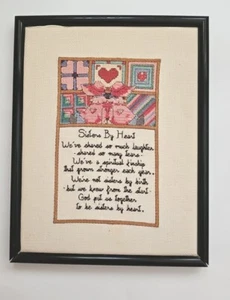 Sisters By Heart
We've shared so much laughter,
-shared so many tears-
We've a spiritual kinship
that grows stronger each year.
We're not sisters by birth
-but we knew from the start-
God put us together
to be sisters by heart.